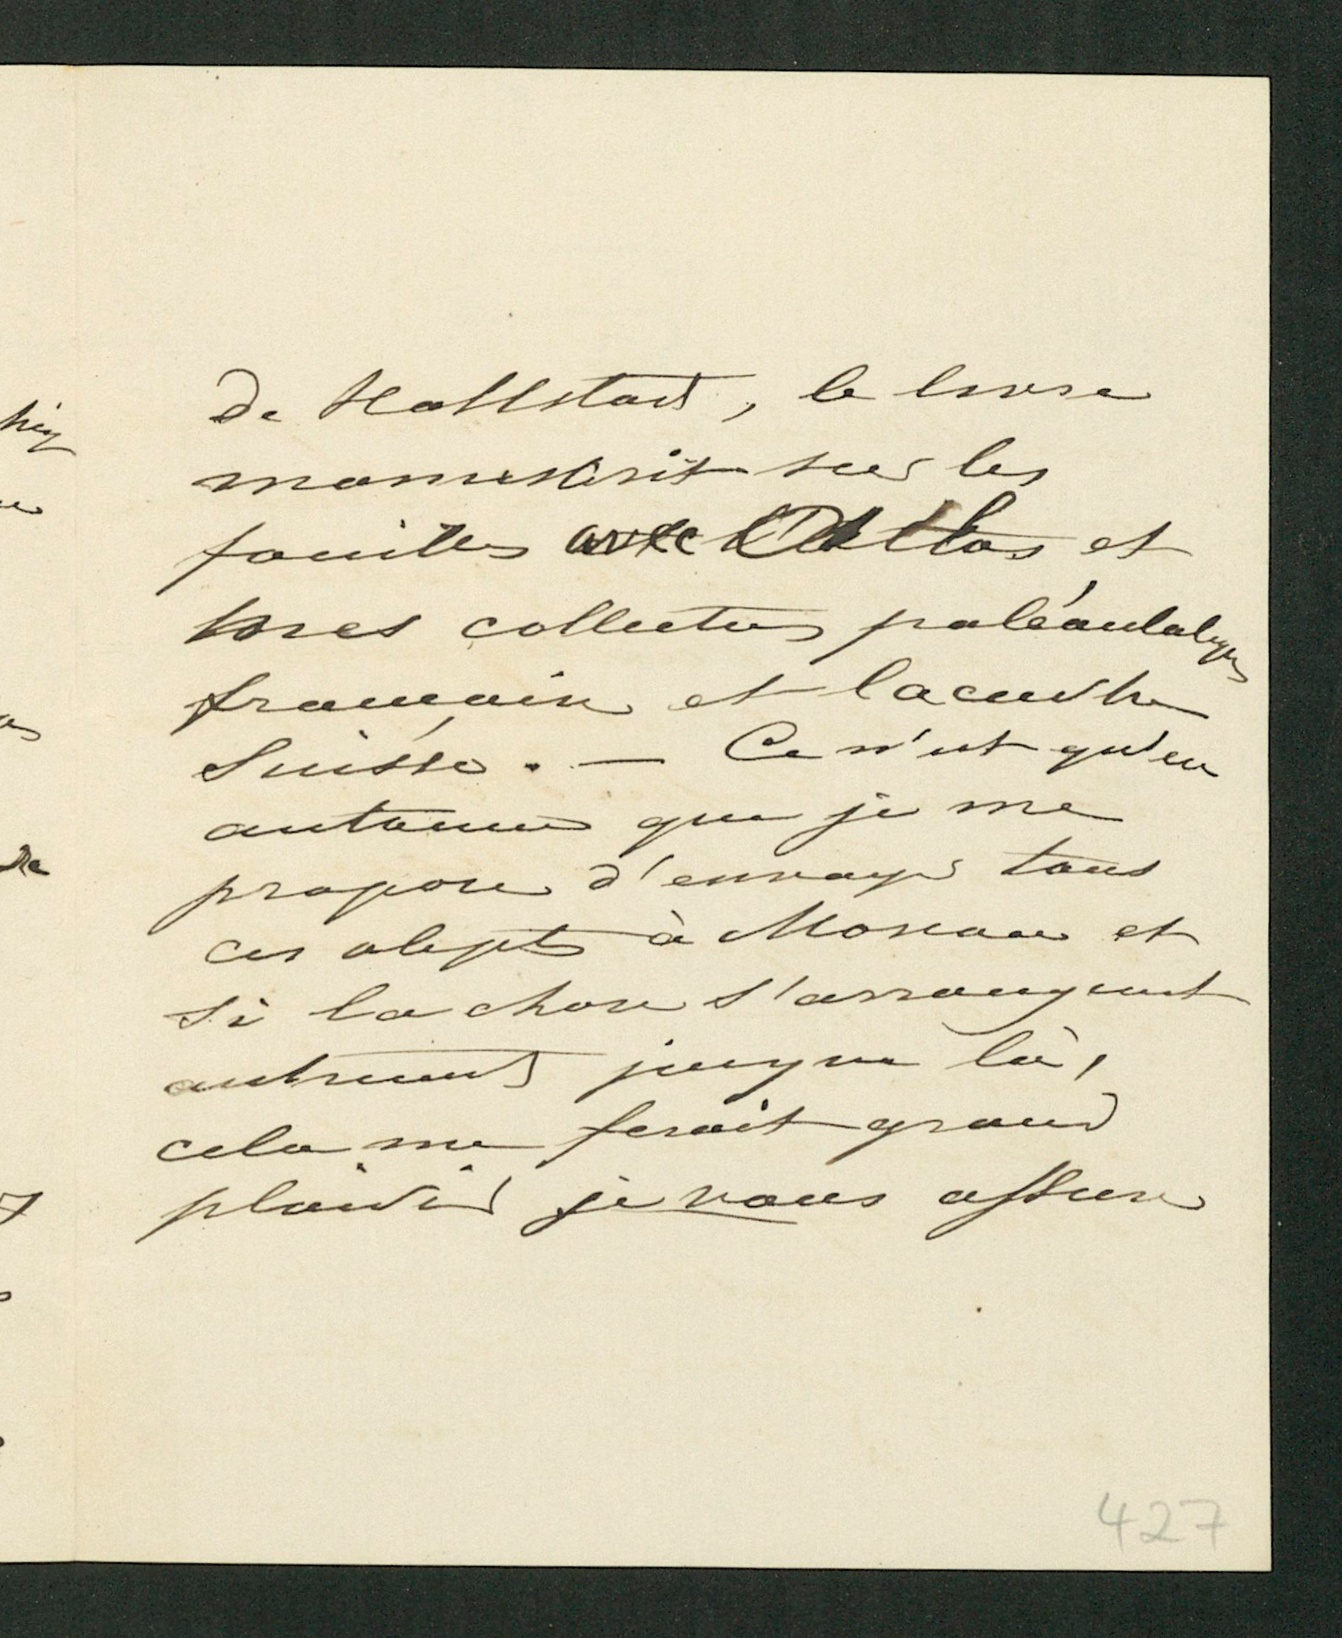 de Hallstad, le livre
manuskrit sur les
fouilles avec l'Atlas et
mes collections paléontologiques
française et lacustre
Suisse. — Ce n'est qu'en
automne que je me
propose d'envoyer tous
ces objets à Moscou et
si la chose s'arrangeait
autrement jusque là,
cela me ferait grand
plaisir je vous assure
427